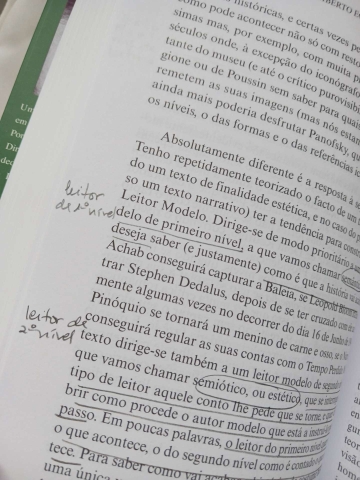 históricas, e certas vezes pe
como pode acontecer não só com resto
simas mas, por exemplo, com muita
séculos onde, à excepção do iconógrafo
tante do museu (e até o crítico purovisibi
gione ou de Poussin sem saber para quai
remetem as suas imagens (mas nós estan
ainda mais poderia desfrutar Panofsky,
os níveis, o das formas e o das referências ic
Absolutamente diferente é a resposta à se
Tenho repetidamente teorizado o facto de u
do um texto de finalidade estética, e no caso de p
so um texto narrativo) ter a tendência para cons
Leitor Modelo. Dirige-se de modo prioritário a
delo de primeiro nível, a que vamos chamar semân
deseja saber (e justamente) como é que a história v
Achab conseguirá capturar a Baleia, se Leopold Bloom
trar Stephen Dedalus, depois de se ter cruzado com
mente algumas vezes no decorrer do dia 16 de Junho de
Pinóquio se tornará um menino de carne e osso, se o
conseguirá regular as suas contas com o Tempo Perdido
texto dirige-se também a um leitor modelo de segundo
que vamos chamar semiótico, ou estético, que se interr
tipo de leitor aquele conto lhe pede que se torne, e que
brir como procede o autor modelo que está a instruí-
passo. Em poucas palavras, o leitor do primeiro nível
o que acontece, o do segundo nível como é contado o que
tece. Para saber como vai acabar
uma única
leitor
de 1º nível
leitor de
2º nível
Um
em
Por
Dir
dec